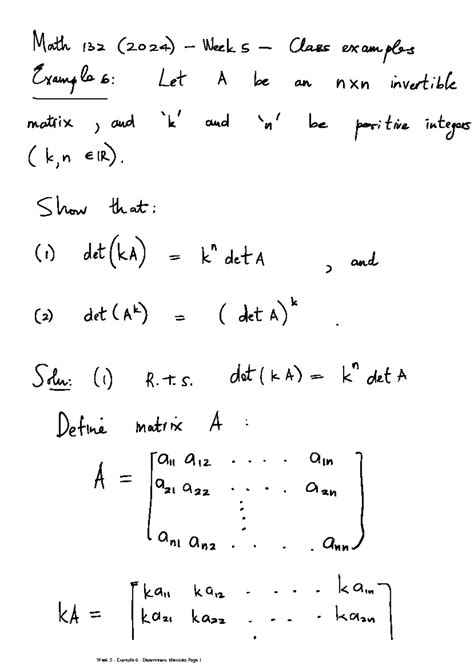 Math 132 (2024) - Week 5 - Class examples
Example 6: Let A be an n×n invertible
matrix, and 'k' and 'n' be positive integers
(k,n ∈ IR).
Show that:
(1) det(kA) = kⁿ det A , and
(2) det(Aᵏ) = (det A)ᵏ.
Soln: (1) R.t.s. det(kA) = kⁿ det A
Define matrix A :
A = [a₁₁ a₁₂ . . . . a₁ₙ
a₂₁ a₂₂ . . . . a₂ₙ
⋮
aₙ₁ aₙ₂ . . . aₙₙ]
kA = [ka₁₁ ka₁₂ . . . . ka₁ₙ
ka₂₁ ka₂₂ . . . . ka₂ₙ
Week 5 - Example 6 - Determinant Identities Page 1